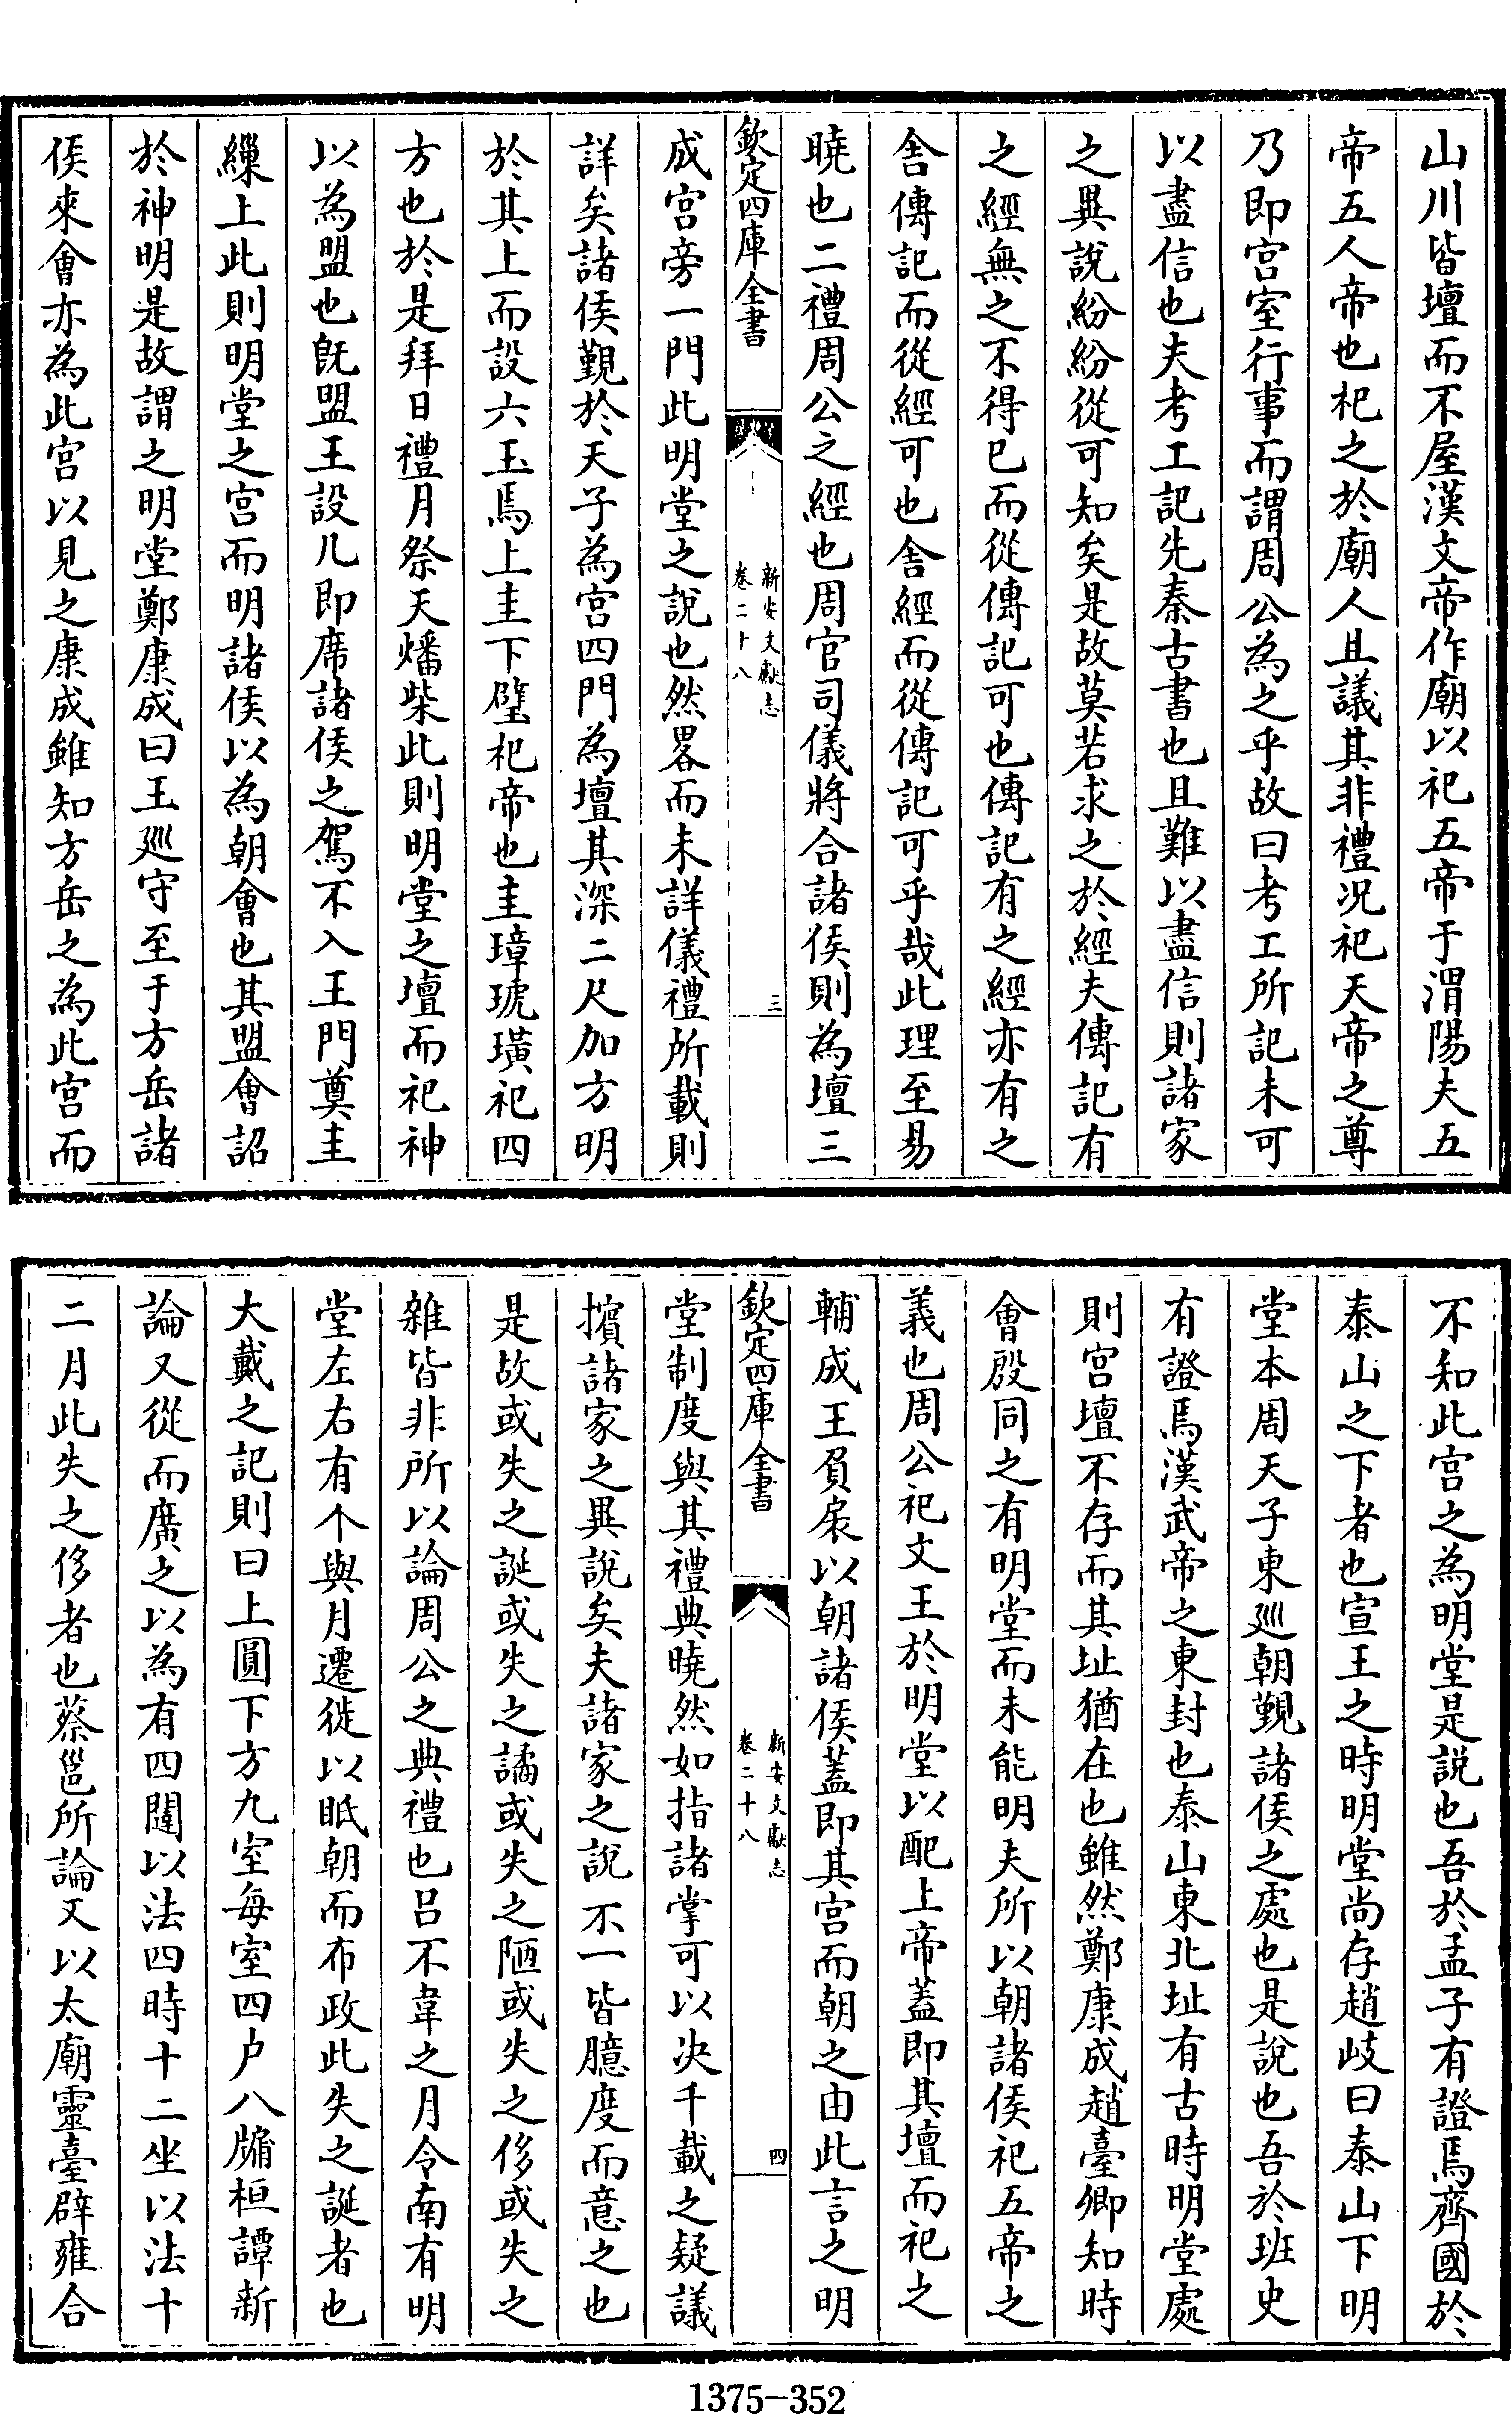 山川皆壇而不屋漢文帝作廟以祀五帝于渭陽夫五
帝五人帝也祀之於廟人且議其非禮况祀天帝之尊
乃即宫室行事而謂周公為之乎故曰考工所記未可
以盡信也夫考工記先秦古書也且難以盡信則諸家
之異說紛紛從可知矣是故莫若求之於經夫傳記有
之經無之不得已而從傳記可也傳記有之經亦有之
舎傳記而從經可也舎經而從傳記可乎哉此理至易
曉也二禮周公之經也周官司儀將合諸侯則為壇三
欽定四庫全書
新安文獻志
卷二十八
三
成宫旁一門此明堂之說也然畧而未詳儀禮所載則
詳矣諸侯覲於天子為宫四門為壇其深二尺加方明
於其上而設六玉焉上圭下璧祀帝也圭璋琥璜祀四
方也於是拜日禮月祭天燔柴此則明堂之壇而祀神
以為盟也旣盟王設几即席諸侯之駕不入王門奠圭
繅上此則明堂之宫而明諸侯以為朝會也其盟會詔
於神明是故謂之明堂鄭康成曰王廵守至于方岳諸
侯來會亦為此宫以見之康成雖知方岳之為此宫而
不知此宫之為明堂是說也吾於孟子有證焉齊國於
泰山之下者也宣王之時明堂尚存趙岐曰泰山下明
堂本周天子東廵朝覲諸侯之處也是說也吾於班史
有證焉漢武帝之東封也泰山東北址有古時明堂處
則宫壇不存而其址猶在也雖然鄭康成趙臺卿知時
會殷同之有明堂而未能明夫所以朝諸侯祀五帝之
義也周公祀文王於明堂以配上帝蓋即其壇而祀之
輔成王負扆以朝諸侯蓋即其宫而朝之由此言之明
欽定四庫全書
新安文獻志
卷二十八
四
堂制度與其禮典曉然如指諸掌可以決千載之疑議
擯諸家之異說矣夫諸家之說不一皆臆度而意之也
是故或失之誕或失之譎或失之陋或失之侈或失之
雜皆非所以論周公之典禮也吕不韋之月令南有明
堂左右有个與月遷徙以眂朝而布政此失之誕者也
大戴之記則曰上圓下方九室每室四户八牖桓譚新
論又從而廣之以為有四闥以法四時十二坐以法十
二月此失之侈者也蔡邕所論又以太廟靈臺辟雍合